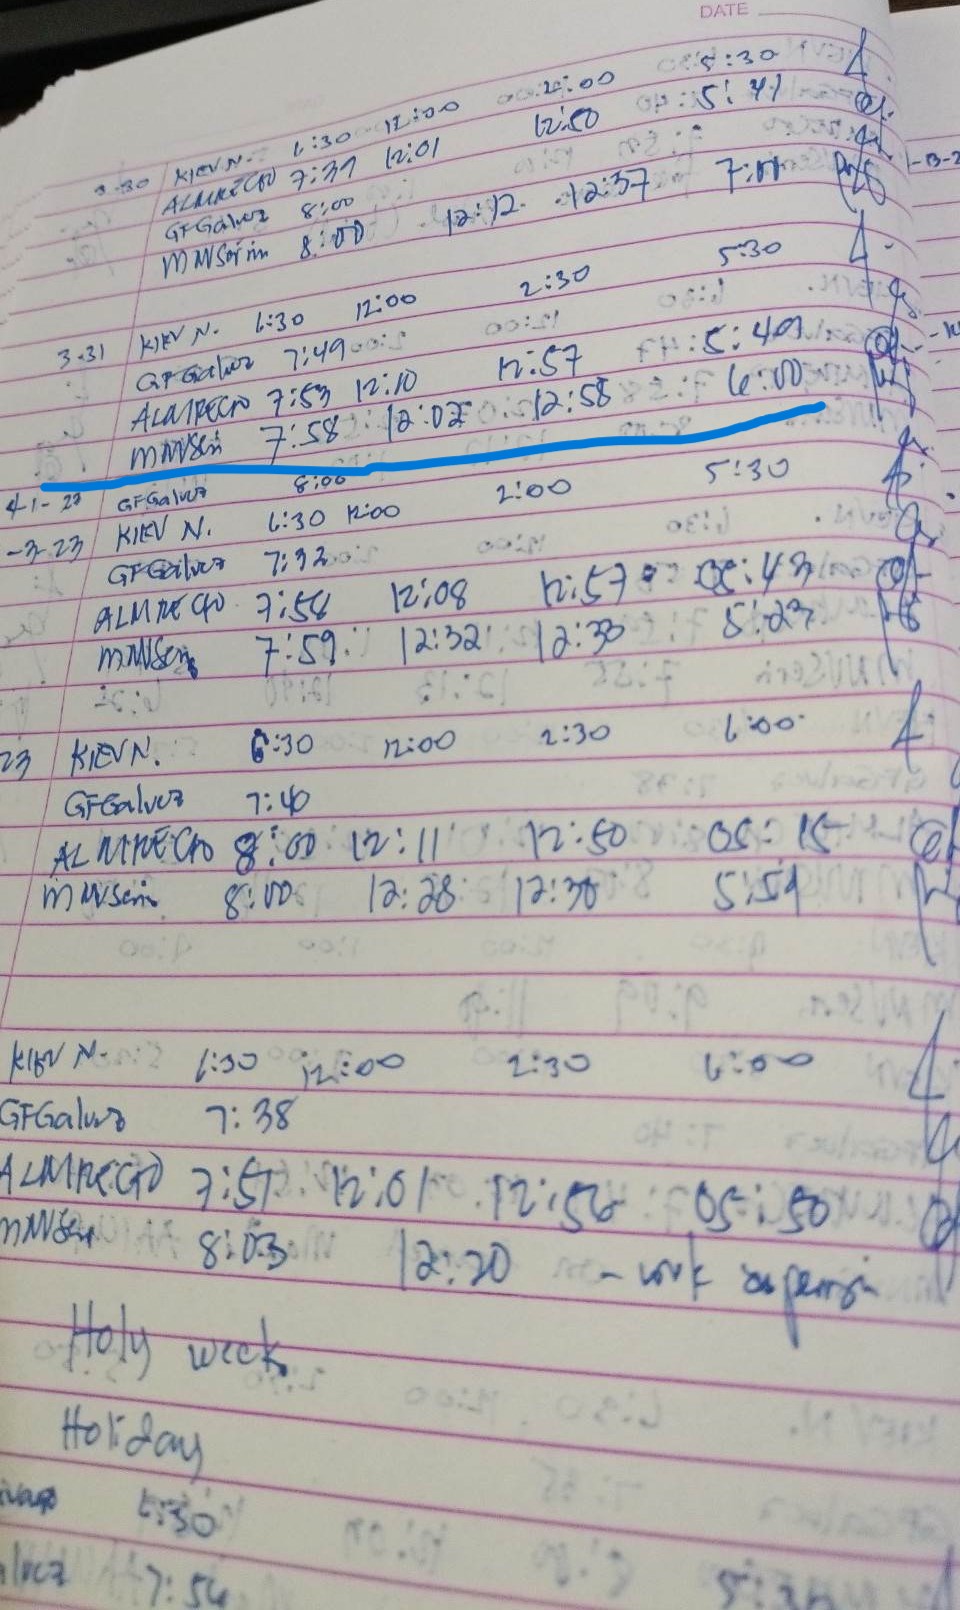 DATE
3-30 KIEV N. 6:30 12:00 2:00 5:30
ALMRECTO 7:37 12:01 12:50 5:41
GFGalvez 8:00
MNVSerin 8:00 12:12 12:37 7:01
3-31 KIEV N. 6:30 12:00 2:30 5:30
GFGalvez 7:49
ALMRECTO 7:53 12:10 12:57 5:40
MNVSerin 7:58 12:02 12:58 6:00
4-1-23 GFGalvez 8:00
-3-23 KIEV N. 6:30 12:00 2:00 5:30
GFGalvez 7:32
ALMRECTO 7:58 12:08 12:57 05:43
MNVSerin 7:59 12:32 12:33 5:23
23 KIEV N. 6:30 12:00 2:30 6:00
GFGalvez 7:40
ALMRECTO 8:00 12:11 12:50 05:15
MNVSerin 8:00 12:28 12:30 5:59
KIEV N. 6:30 12:00 2:30 6:00
GFGalvez 7:38
ALMRECTO 7:51 12:01 12:56 05:50
MNVSerin 8:03 12:20 - work
Holy week
Holiday
6:30
7:54